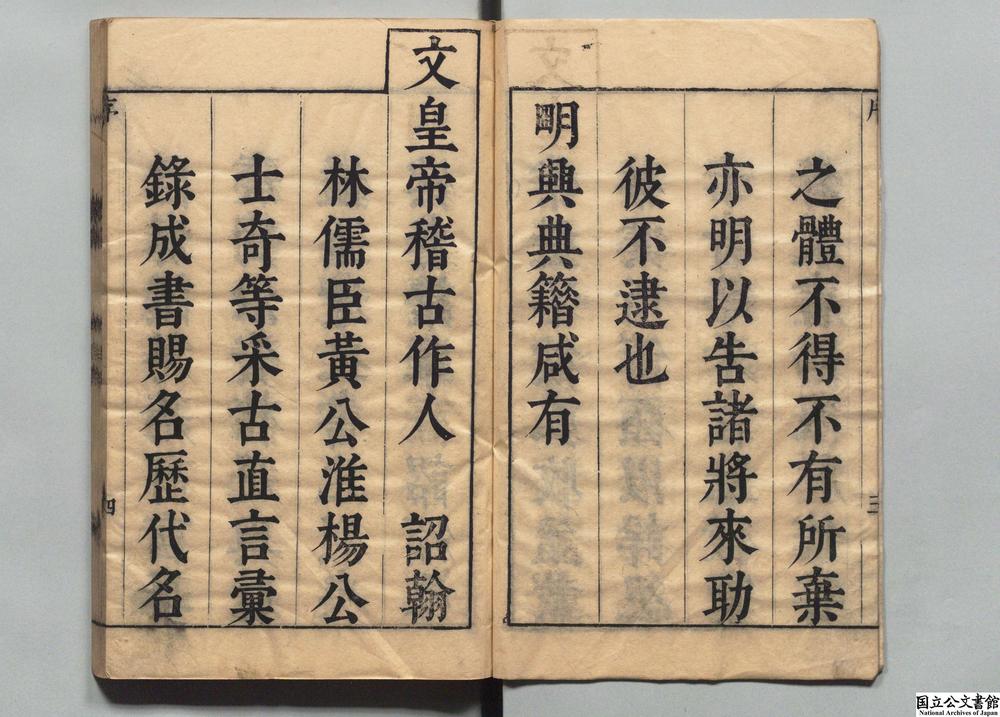 之體不得不有所棄
亦明以告諸將來助
彼不逮也
明興典籍咸有
文皇帝稽古作人　詔翰
林儒臣黃公淮楊公
士奇等采古直言彙
錄成書賜名歷代名
四
国立公文書館
National Archives of Japan